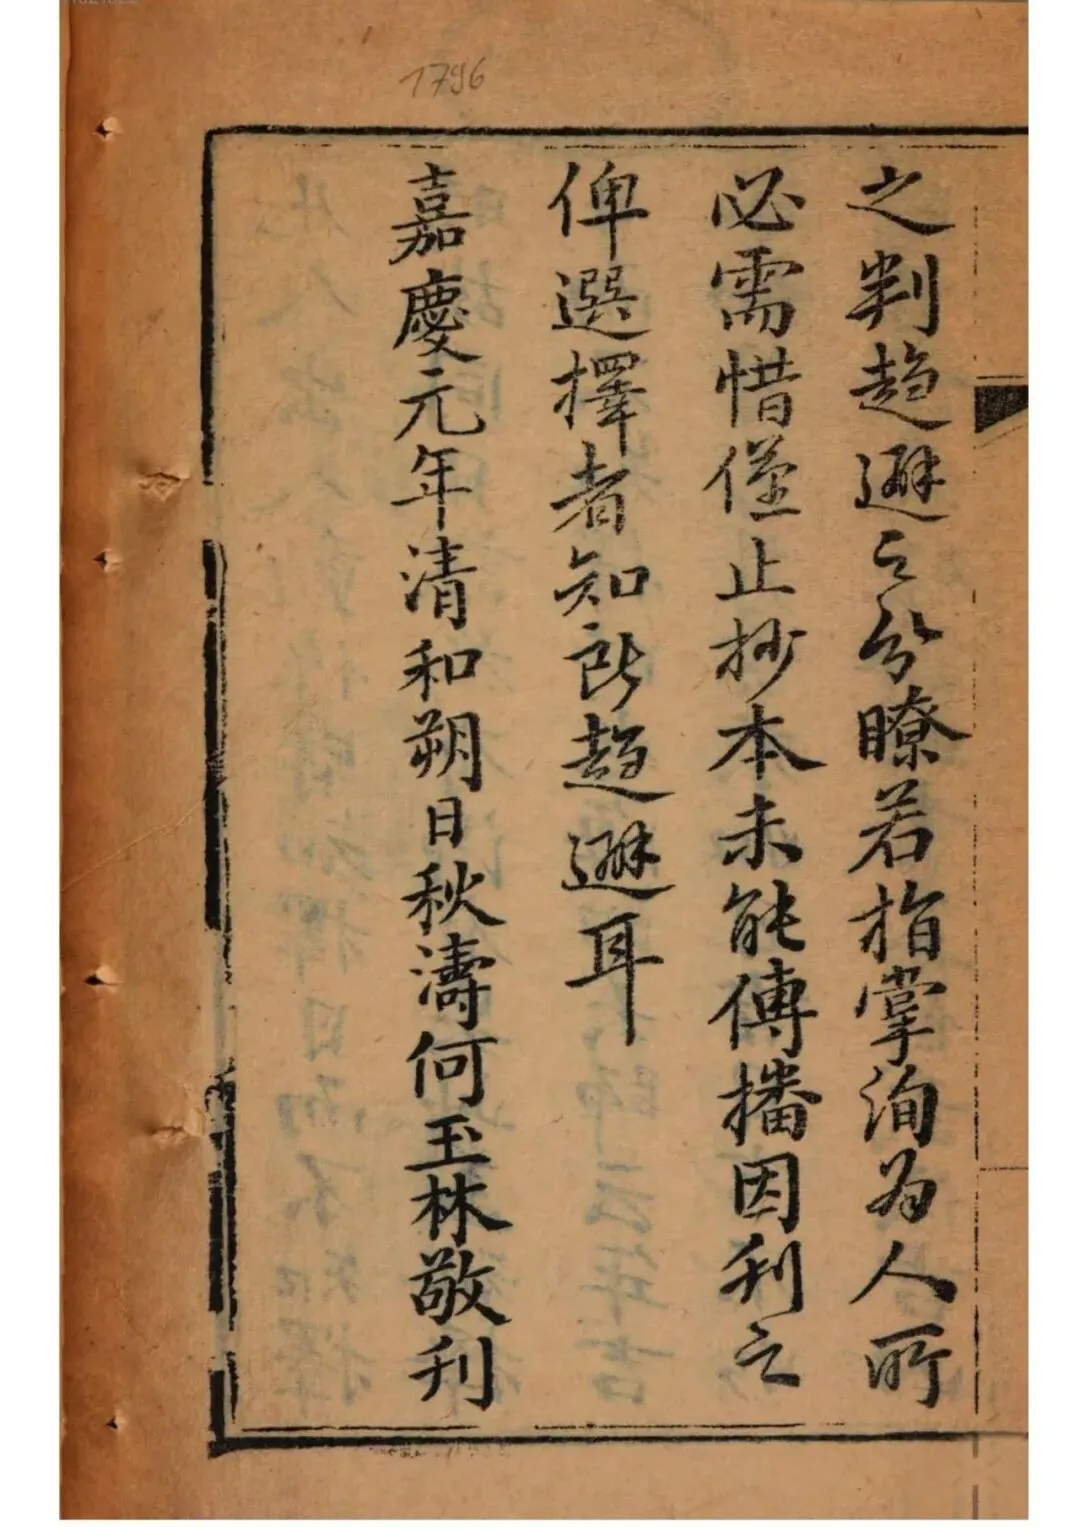 1796
之判趋避之兮瞭若指掌洵为人所
必需惜僅止抄本未能傳播因刊之
俾選擇者知所趋避耳
嘉慶元年清和朔日秋濤何玉林敬刊